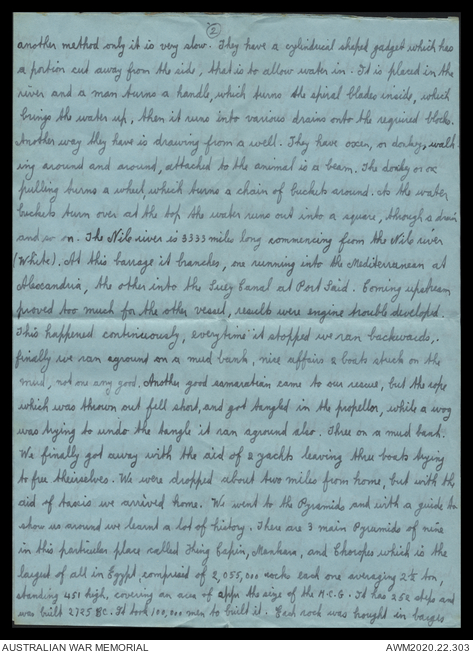 2
another method only it is very slow. They have a cylinducil shaped gadget which has
a portion cut away from the side, that is to allow water in. It is placed in the
river and a man turns a handle, which turns the spiral blades inside, which
brings the water up, then it runs into various drains onto the required blocks.
Another way they have is drawing from a well. They have oxen, or donkey, walk
ing around and around, attached to the animal is a beam. The donkey or ox
pulling turns a wheel which turns a chain of buckets around. As the water
buckets turn over at the top the water runs out into a square, though a drain
and so on. The Nile river is 3333 miles long commencing from the Nile river
(White). At this barrage it branches, one running into the Mediterranean at
Alexandria, the other into the Suez Canal at Port Said. Coming upstream
proved too much for the other vessel, results were engine trouble developed.
This happened continuously, everytime it stopped we ran backwards,
finally we ran aground on a mud bank, nice affairs 2 boats stuck on the
mud, not one any good. Another good samaration came to our rescue, but the rope
which was thrown out fell short, and got tangled in the propellor, while a wog
was trying to undo the tangle it ran aground also. Three on a mud bank.
We finally got away with the aid of 2 yachts leaving three boats trying
to free theirselves. We were dropped about two miles from home, but with the
aid of taxis we arrived home. We went to the Pyramids and with a guide to
show us around we learnt a lot of history. There are 3 main Pyramids of nine
in this particular place called King and which is the
largest of all in Egypt, comprised of 2,055,000 rocks each one averaging 2½ ton,
standing 451 high, covering an area of appr the size of the M.C.G. It had 252 steps and
was built 2725 BC. It took 100,000 men to built it. Each rock was brought in barges
AUSTRALIAN WAR MEMORIAL
AWM2020.22.303